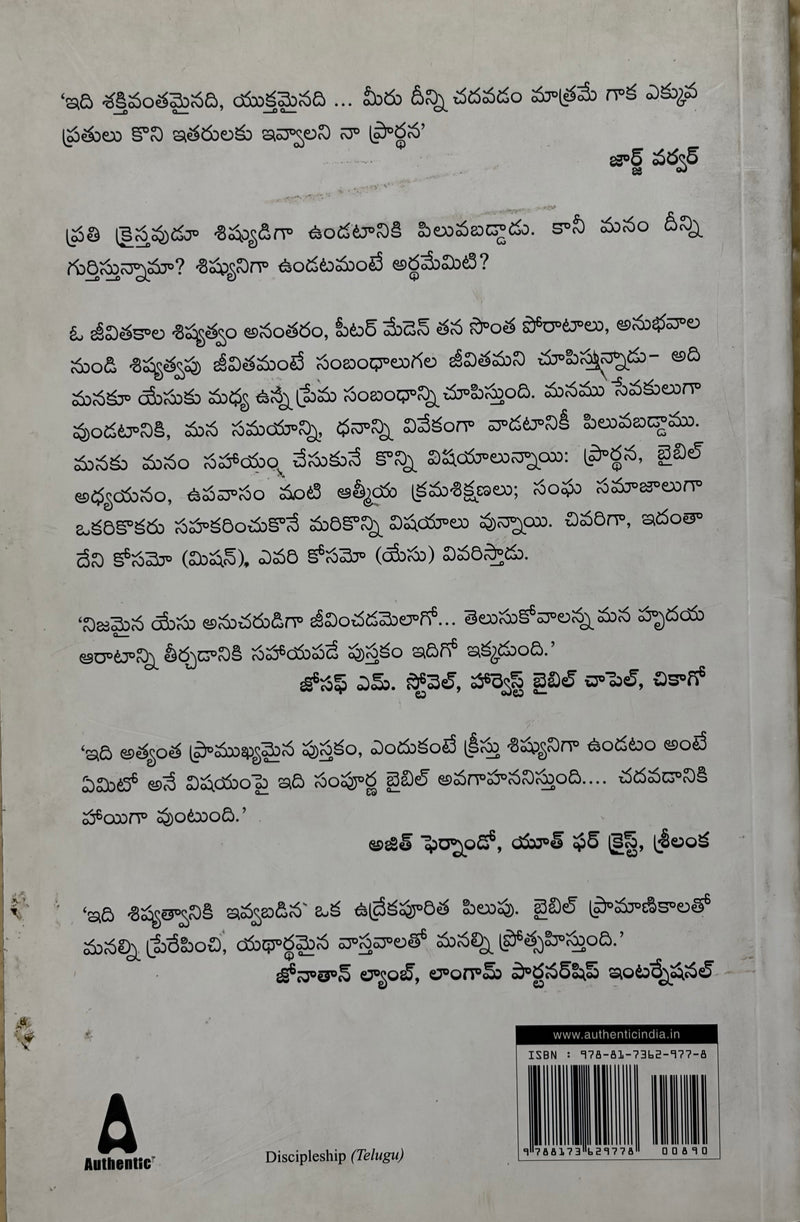 ‘ఇది శక్తివంతమైనది, యుక్తమైనది ... మీరు దీన్ని చదవడం మాత్రమే గాక ఎక్కువ
ప్రతులు కొని ఇతరులకు ఇవ్వాలని నా ప్రార్థన’
జార్జ్ వర్వర్
ప్రతి క్రైస్తవుడూ శిష్యుడిగా ఉండటానికి పిలువబడ్డాడు. కానీ మనం దీన్ని
గుర్తిస్తున్నామా? శిష్యునిగా ఉండటమంటే అర్థమేమిటి?
ఓ జీవితకాల శిష్యత్వం అనంతరం, పీటర్ మేడెన్ తన సొంత పోరాటాలు, అనుభవాల
నుండి శిష్యత్వపు జీవితమంటే సంబంధాలుగల జీవితమని చూపిస్తున్నాడు- అది
మనకూ యేసుకు మధ్య ఉన్న ప్రేమ సంబంధాన్ని చూపిస్తుంది. మనము సేవకులుగా
వుండటానికి, మన సమయాన్ని, ధనాన్ని వివేకంగా వాడటానికీ పిలువబడ్డాము.
మనకు మనం సహాయం చేసుకునే కొన్ని విషయాలున్నాయి: ప్రార్థన, బైబిల్
అధ్యయనం, ఉపవాసం వంటి ఆత్మీయ క్రమశిక్షణలు; సంఘ సమాజాలుగా
ఒకరికొకరు సహకరించుకొనే మరికొన్ని విషయాలు వున్నాయి. చివరిగా, ఇదంతా
దేని కోసమో (మిషన్), ఎవరి కోసమో (యేసు) వివరిస్తాడు.
‘నిజమైన యేసు అనుచరుడిగా జీవించడమెలాగో... తెలుసుకోవాలన్న మన హృదయ
ఆరాటాన్ని తీర్చడానికి సహాయపడే పుస్తకం ఇదిగో ఇక్కడుంది.’
జోసఫ్ ఎమ్. స్టోవెల్, హార్వెస్ట్ బైబిల్ చాపెల్, చికాగో
‘ఇది అత్యంత ప్రాముఖ్యమైన పుస్తకం, ఎందుకంటే క్రీస్తు శిష్యునిగా ఉండటం అంటే
ఏమిటో అనే విషయంపై ఇది సంపూర్ణ బైబిల్ అవగాహననిస్తుంది.... చదవడానికి
హాయిగా వుంటుంది.’
అజిత్ ఫెర్నాండో, యూత్ ఫర్ క్రైస్ట్, శ్రీలంక
‘ఇది శిష్యత్వానికి ఇవ్వబడిన ఒక ఉద్రేకపూరిత పిలుపు. బైబిల్ ప్రామాణికాలతో
మనల్ని ప్రేరేపించి, యథార్థమైన వాస్తవాలతో మనల్ని ప్రోత్సహిస్తుంది.’
జోనాతాన్ ల్యాంబ్, లాంగామ్ పార్టనర్‌షిప్ ఇంటర్నేషనల్
www.authenticindia.in
ISBN : 978-81-7362-977-8
9 788173 629778
00890
Authentic
Discipleship (Telugu)